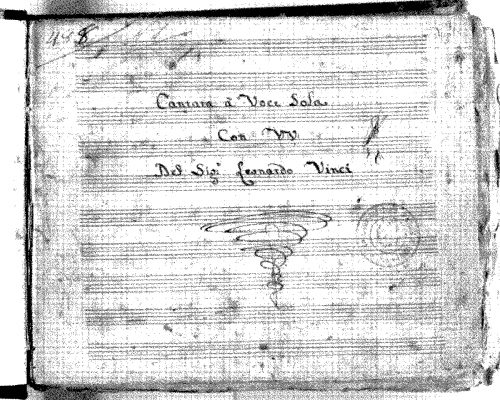 448
Cantata à Voce Sola
Con VV
Del Sigr Leonardo Vinci